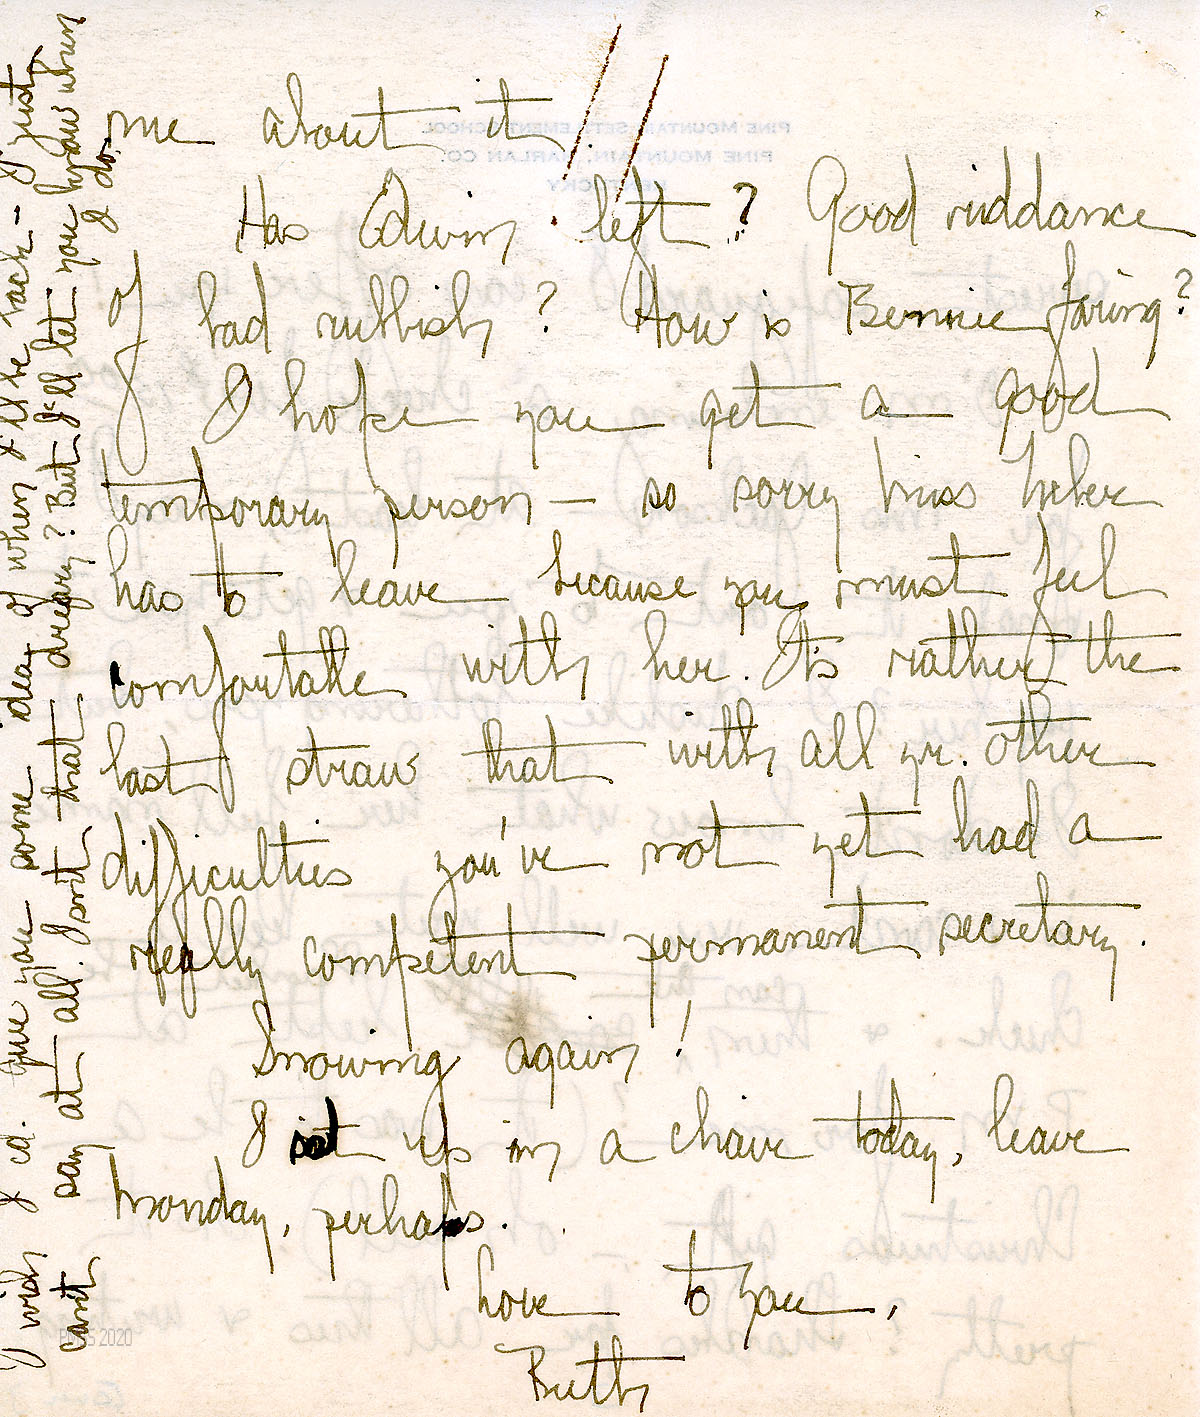 me about it.
Has Edwin left? Good riddance
of bad rubbish? How is Bennie faring?
I hope you get a good
temporary person — so sorry Miss
has to leave because you must feel
comfortable with her. It's rather the
last straw that with all yr. other
difficulties you've not yet had a
really competent permanent secretary.
Snowing again!
I sit up in a chair today, leave
Monday, perhaps.
Love to you,
Ruth
I wish I cd. give you some idea of when I'll be back — I just
can't say at all. Isn't that dreary? But I'll let you know when
I do.
PINE MOUNTAIN SETTLEMENT SCHOOL
PINE MOUNTAIN, HARLAN CO.
KENTUCKY
PMSS 2020